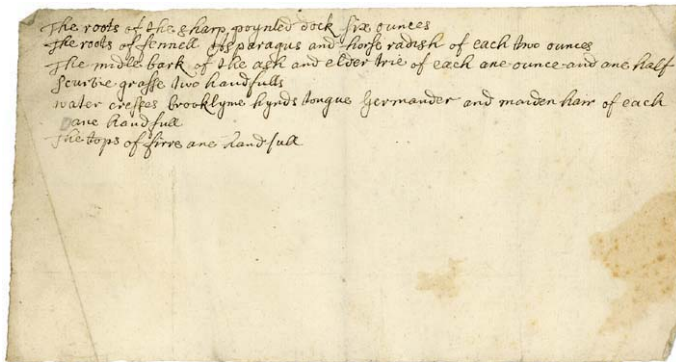 The roots of the sharp poynted dock six ounces
The roots of fennell asparagus and horse radish of each two ounces
The midle bark of the ash and elder trie of each ane ounce and ane half
Scurvie grasse two handfulls
water cresses brooklyme hynds tongue Germander and maiden hair of each
ane handfull
The tops of firre ane handfull